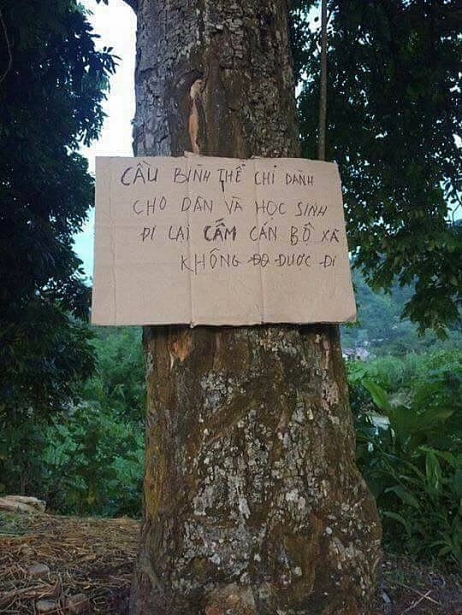 CẦU BÌNH THỂ CHỈ DÀNH
CHO DÂN VÀ HỌC SINH
ĐI LẠI CẤM CÁN BỘ XÃ
KHÔNG ĐO ĐƯƠC ĐI